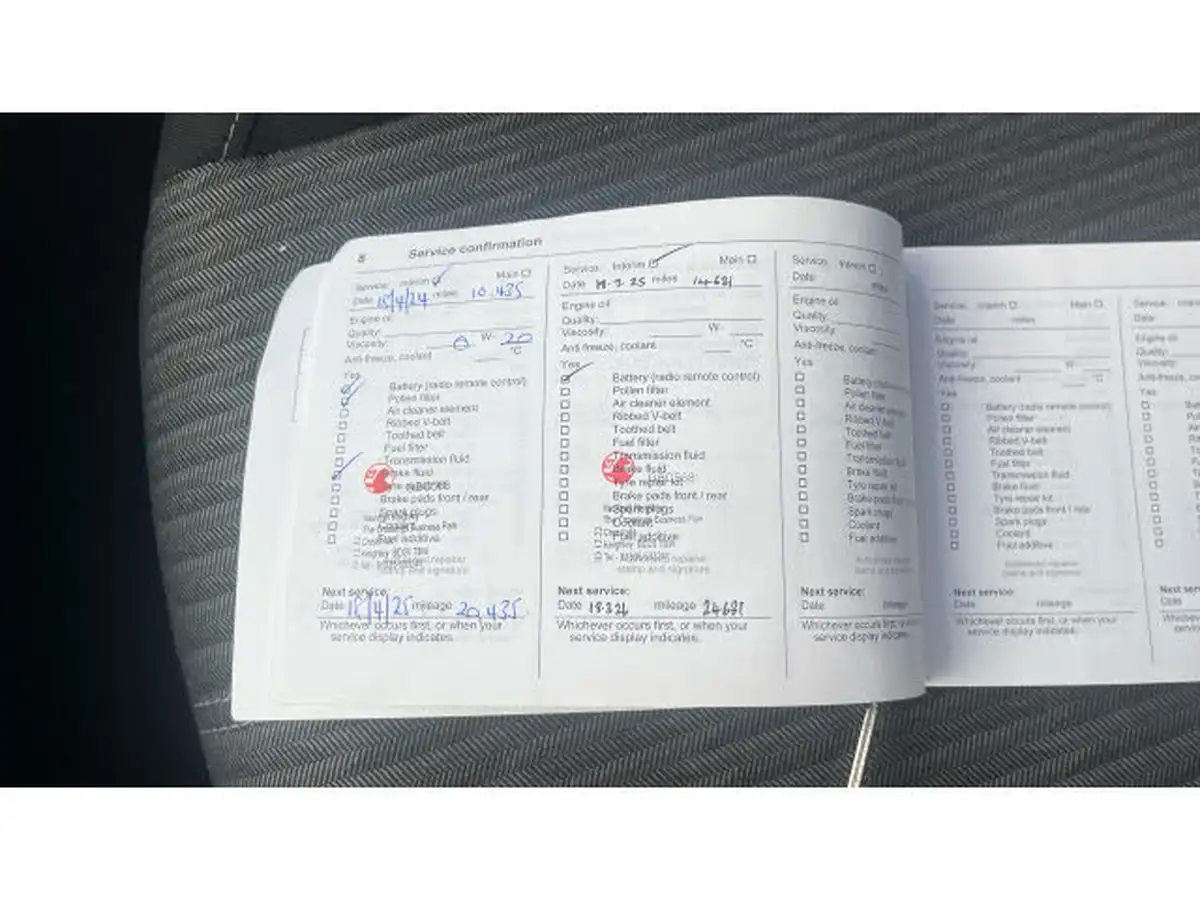 8 Service confirmation
Service: Interim Main
Date 18/4/24 miles 10,435
Engine oil
Quality:
Viscosity: 0 W- 20
Anti-freeze, coolant °C
Yes
Battery (radio remote control)
Pollen filter
Air cleaner element
Ribbed V-belt
Toothed belt
Fuel filter
Transmission fluid
Brake fluid
Tyre repair kit
Brake pads front / rear
Spark plugs
Fuel additive
stamp and signature
Next service:
Date 18/4/25 mileage 20,435
Whichever occurs first, or when your
service display indicates.
Service: Interim Main
Date miles 14681
Engine oil
Quality:
Viscosity: W-
Anti-freeze, coolant °C
Yes
Battery (radio remote control)
Pollen filter
Air cleaner element
Ribbed V-belt
Toothed belt
Fuel filter
Transmission fluid
Brake fluid
Tyre repair kit
Brake pads front / rear
Spark plugs
Coolant
Fuel additive
stamp and signature
Next service:
Date mileage 24681
Whichever occurs first, or when your
service display indicates.
Service: Interim
Date miles
Engine oil
Quality:
Viscosity:
Anti-freeze, coolant
Yes
Battery (radio
Pollen filter
Air cleaner
Ribbed V-belt
Toothed belt
Fuel filter
Transmission
Brake fluid
Tyre repair kit
Brake pads
Spark plugs
Coolant
Fuel additive
Next service:
Date mileage
Whichever occurs first,
service display
Service: Interim Main
Date miles
Engine oil
Quality:
Viscosity: W
Anti-freeze, coolant °C
Yes
Battery (radio remote control)
Pollen filter
Air cleaner element
Ribbed V-belt
Toothed belt
Fuel filter
Transmission fluid
Brake fluid
Tyre repair kit
Brake pads front / rear
Spark plugs
Coolant
Fuel additive
stamp and signature
Next service:
Date mileage
Whichever occurs first, or when your
service display indicates.
Service:
Date
Engine oil
Quality:
Viscosity:
Yes